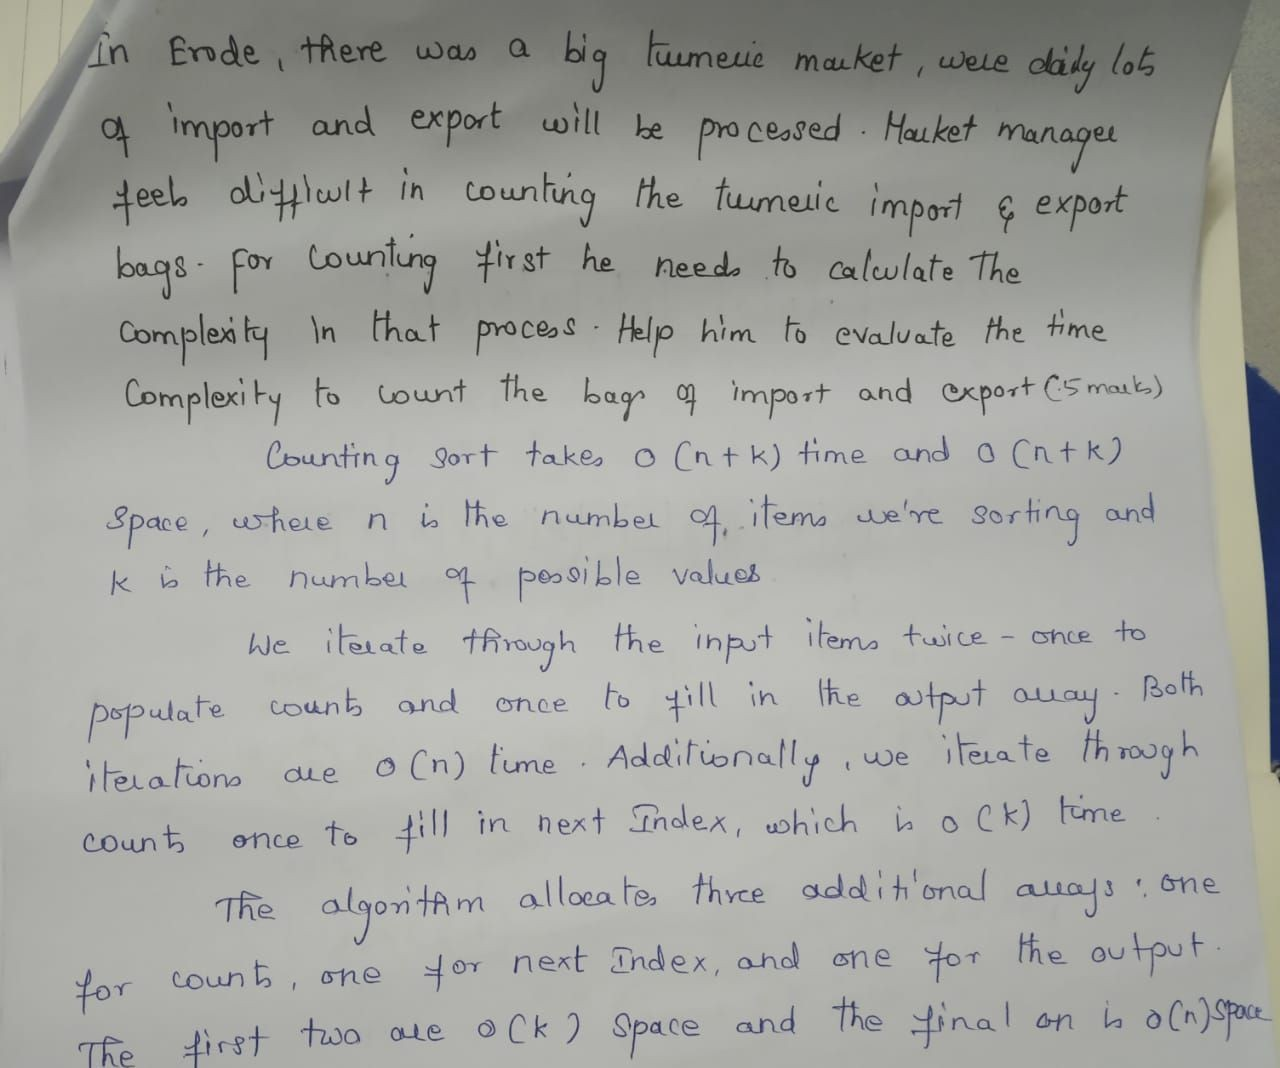 In Erode, there was a big turmeric market, were daily lots
of import and export will be processed. Market manager
feels difficult in counting the turmeric import & export
bags. for counting first he needs to calculate The
complexity in that process. Help him to evaluate the time
complexity to count the bags of import and export (5 marks)
Counting sort takes O(n+k) time and O(n+k)
space, where n is the number of items we're sorting and
k is the number of possible values
We iterate through the input items twice - once to
populate counts and once to fill in the output array. Both
iterations are O(n) time. Additionally, we iterate through
counts once to fill in next Index, which is O(k) time.
The algorithm allocates three additional arrays: one
for counts, one for next Index, and one for the output.
The first two are O(k) space and the final on is O(n) space